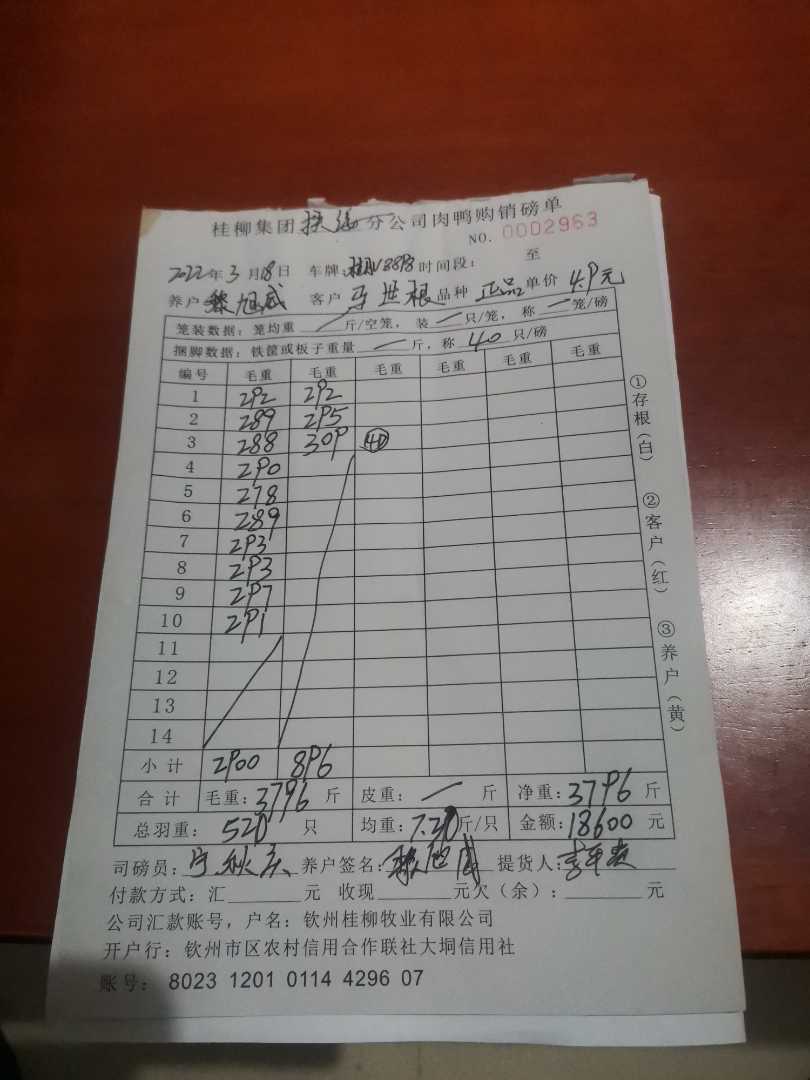 桂柳集团 分公司肉鸭购销磅单
NO. 0002963
2022年3月18日 车牌: 时间段: 至
养户 黎旭成 客户 马世根 品种 正品 单价 4.9元
笼装数据: 笼均重 / 斤/空笼, 装 / 只/笼, 称 / 笼/磅
捆脚数据: 铁筐或板子重量 / 斤, 称 40 只/磅
编号 毛重 毛重 毛重 毛重 毛重 毛重
1 292 292
2 289 295
3 288 309 40
4 290
5 278
6 289
7 293
8 293
9 297
10 291
11
12
13
14
小计 2900 896
合计 毛重: 3796 斤 皮重: / 斤 净重: 3796 斤
总羽重: 520 只 均重: 7.30 斤/只 金额: 18600 元
司磅员: 宁秋庆 养户签名: 黎旭成 提货人:
付款方式: 汇 元 收现 元欠(余): 元
公司汇款账号, 户名: 钦州桂柳牧业有限公司
开户行: 钦州市区农村信用合作联社大垌信用社
账号: 8023 1201 0114 4296 07
①存根(白)
②客户(红)
③养户(黄)